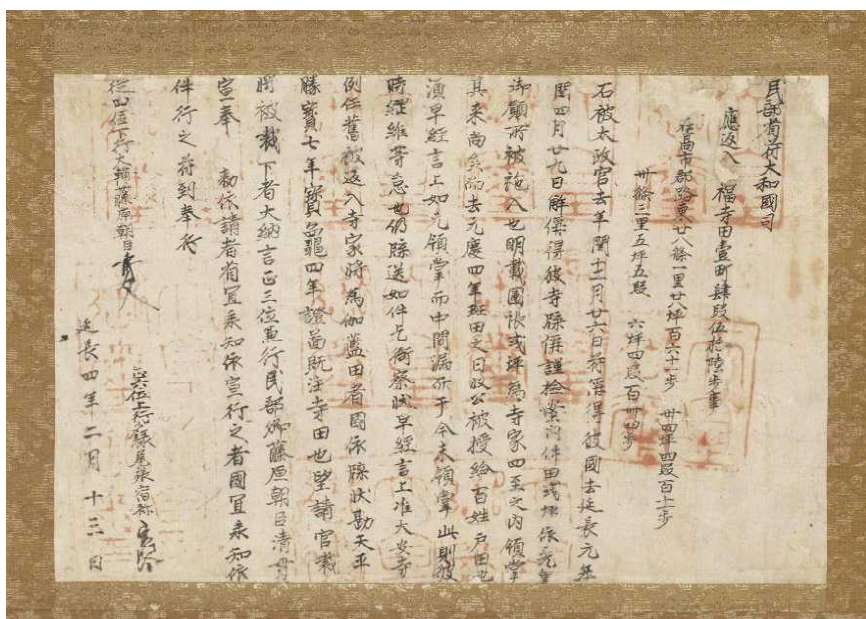 民部省符大和國司
應返入 福寺田壹町肆段伍拾陸步事
在高市郡路東廿八條一里廿八坪百六十一步 卅四坪四段百十步
卅條二里五坪五段 六坪四段百卌四步
右被太政官去年閏十二月廿六日符偁得彼國去延長元年
閏四月廿九日解偁得彼寺牒偁謹檢案內件田或坪依
御願所被施入也明載圖帳或坪爲寺家四至之內領掌
其來尚矣而去元慶四年班田之日收公被授給百姓戶田也
須早經言上如元領掌而中間漏 于今未領掌此則彼
時綱維等怠也仍牒送如件乞衙察狀早經言上准大安寺
例任舊被返入寺家將爲伽藍田者國依牒狀勘天平
勝寶七年寶龜四年證圖既注寺田也望請官裁
將被裁下者大納言正三位兼行民部卿藤原朝臣清貫
宣奉 勅依請者省宜承知依宣行之者國宜承知依
件行之符到奉行
從四位下行大輔藤原朝臣
正六位上行 尾張宿祢
延長四年二月十三日